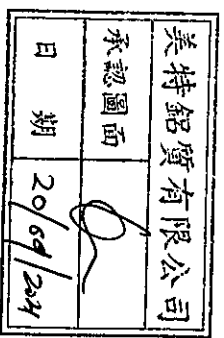 美特鋁質有限公司
承認圖面
日期 20/09/2024